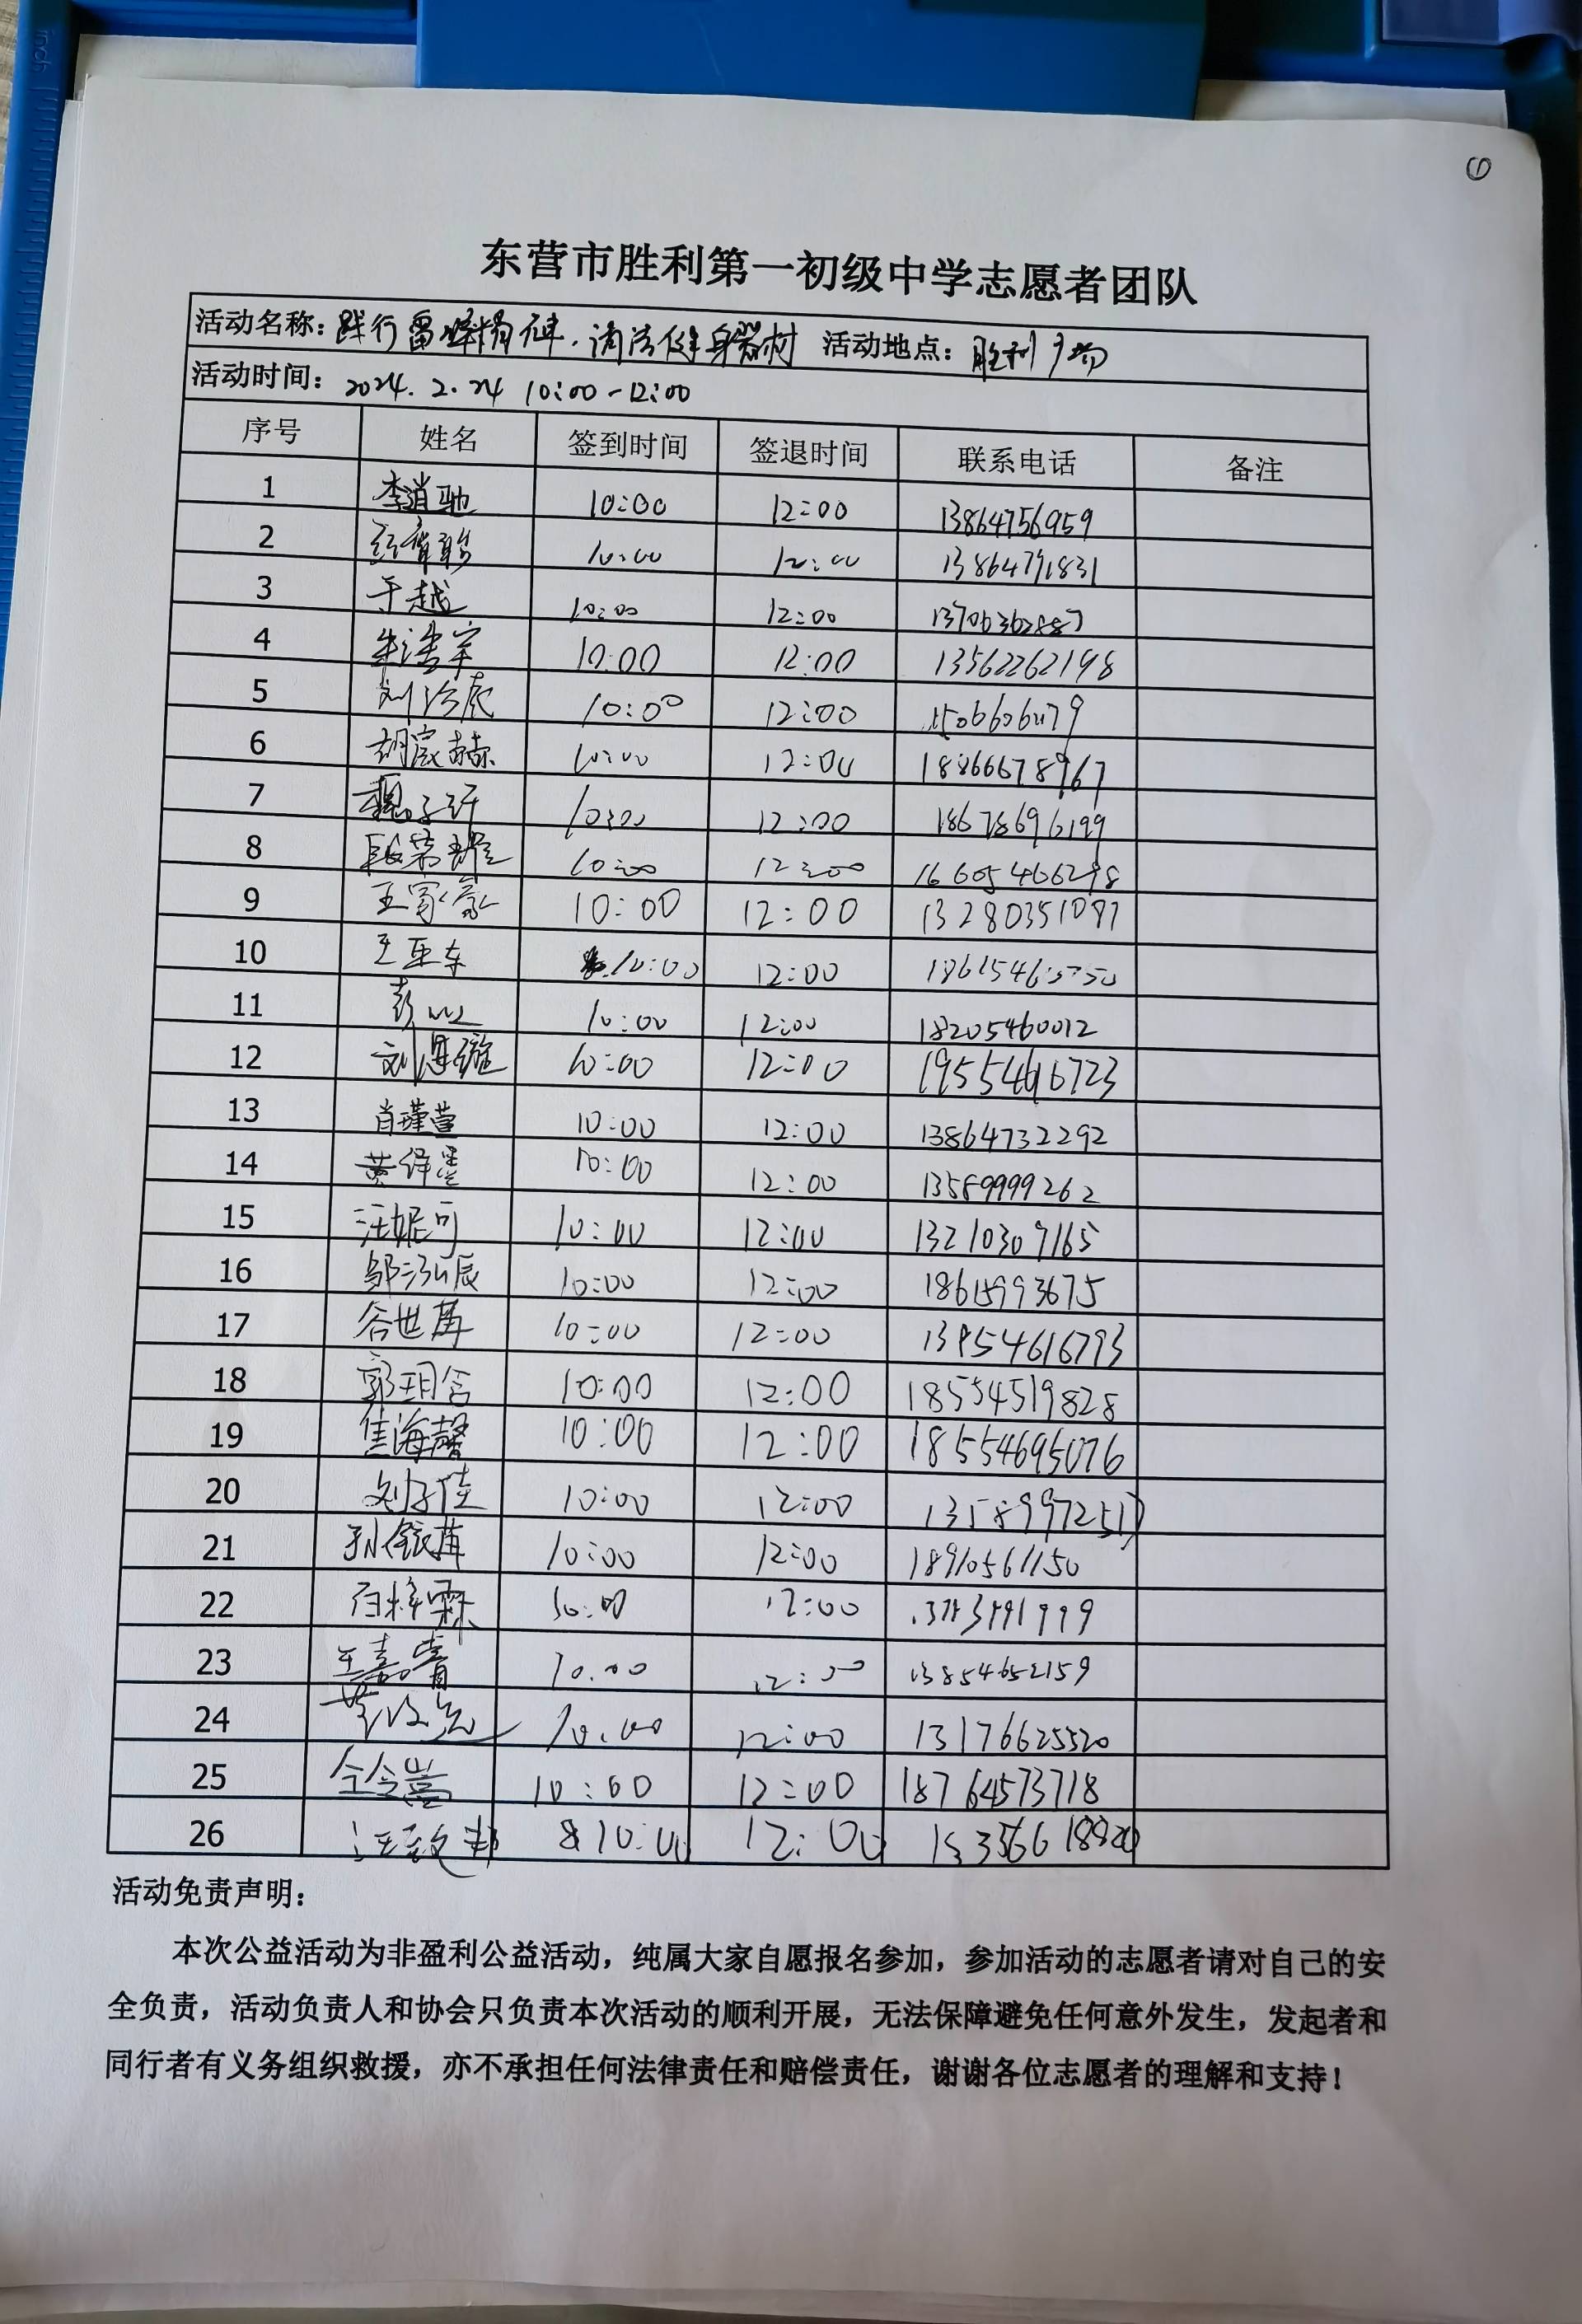 ①
东营市胜利第一初级中学志愿者团队
活动名称：践行雷锋精神，清洁健身器材 活动地点：胜利广场
活动时间：2024.2.24 10:00-12:00
序号 姓名 签到时间 签退时间 联系电话 备注
1 李逍驰 10:00 12:00 13864756959
2 10:00 12:00 13864791831
3 于越 10:00 12:00
4 朱浩宇 10:00 12:00 13562262198
5 10:00 12:00
6 胡宸赫 10:00 12:00 18866678967
7 魏子轩 10:00 12:00 18678696199
8 10:00 12:00 16605466298
9 王家豪 10:00 12:00
10 王亚东 10:00 12:00
11 10:00 12:00 18205460012
12 10:00 12:00 19554616723
13 肖瑾萱 10:00 12:00 13864732292
14 黄绎墨 10:00 12:00 13589999262
15 汪妮可 10:00 12:00 13210309165
16 邹泓辰 10:00 12:00 18615993675
17 谷世苒 10:00 12:00
18 郭玥含 10:00 12:00 18554519828
19 焦海馨 10:00 12:00 18554695076
20 刘子佳 10:00 12:00
21 10:00 12:00 18910561150
22 10:00 12:00
23 10:00 12:00 13854652159
24 10:00 12:00 13176625520
25 仝令嵩 10:00 12:00 18764573718
26 10:00 12:00
活动免责声明：
本次公益活动为非盈利公益活动，纯属大家自愿报名参加，参加活动的志愿者请对自己的安
全负责，活动负责人和协会只负责本次活动的顺利开展，无法保障避免任何意外发生，发起者和
同行者有义务组织救援，亦不承担任何法律责任和赔偿责任，谢谢各位志愿者的理解和支持！